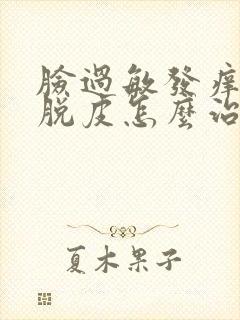 臉過敏發痒
脫皮怎麼治
夏木果子